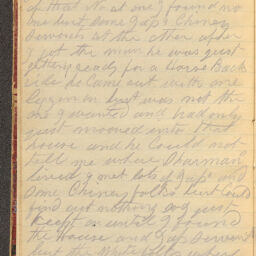 of that sto at one g found no
one but some Jap & Chiney
Servents at the other after
g got the man he was just
getting ready for a Horse Back
ride he Came out with one
but was not the
one g wanted and had only
just mooved into that
house and he Could not
tell me where Sharman
lived g met lots of Jap and
Some Chiney folks but Could
find out nothing so g just
Kept on untill g found
the House and Jap Servent
but the